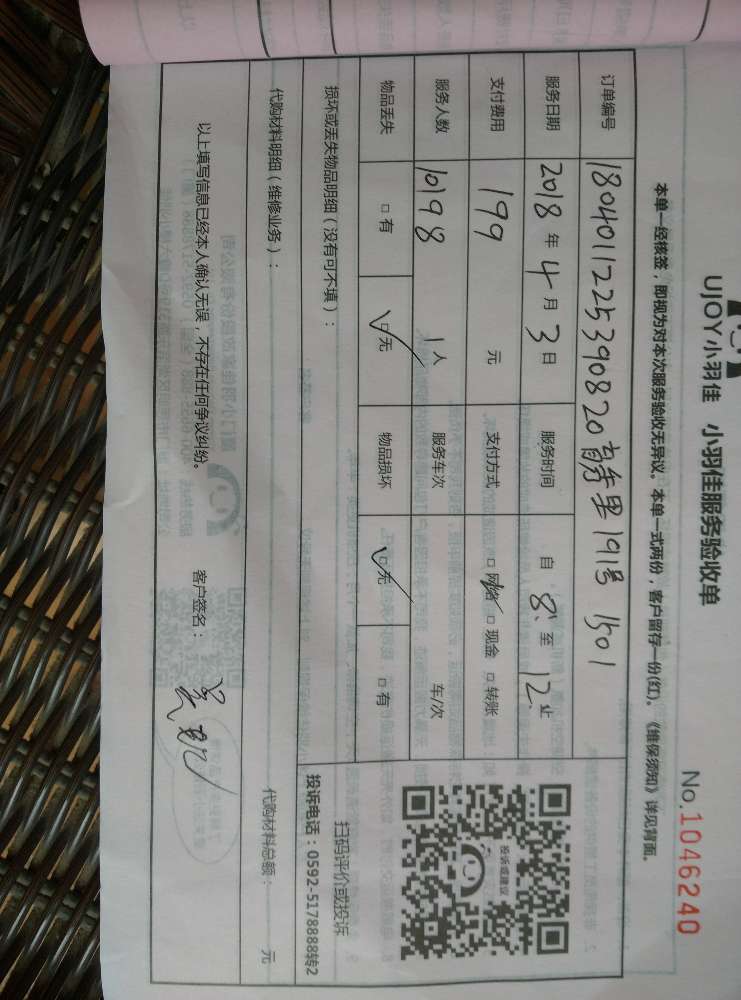 UJOY小羽佳 小羽佳服务验收单
No.1046240
本单一经核签，即视为对本次服务验收无异议。本单一式两份，客户留存一份(红)。《维保须知》详见背面。
订单编号 1804011225390820 里191号 1501
服务日期 2018年4月3日 服务时间 自8:至12:止
支付费用 199 元 支付方式 □网络 □现金 □转账
服务人数 10198 1人 服务车次 车/次
物品丢失 □有 □无 物品损坏 □无 □有
投诉或建议
扫码评价或投诉
投诉电话：0592-5178888转2
损坏或丢失物品明细（没有可不填）：
代购材料明细（维修业务）： 代购材料总额： 元
以上填写信息已经本人确认无误，不存在任何争议纠纷。 客户签名：